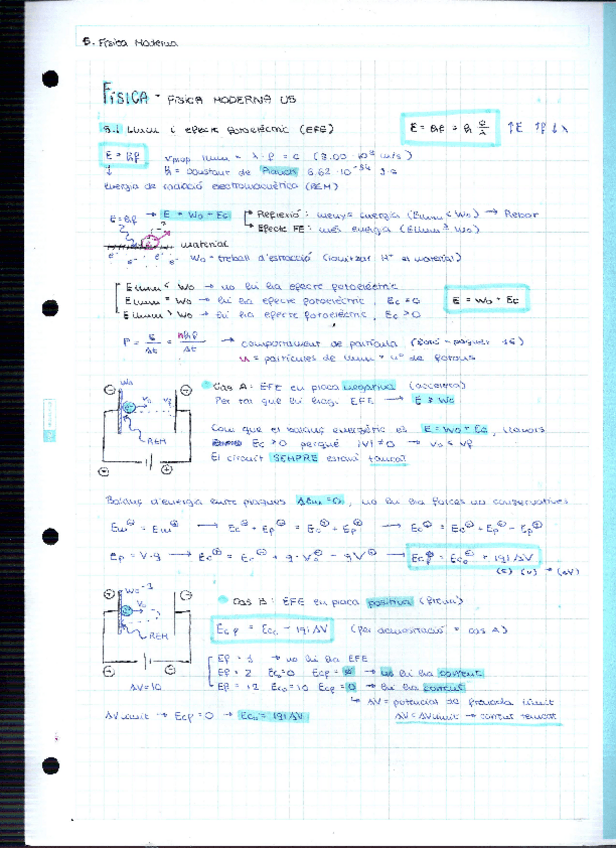 5. Física Moderna
FÍSICA - FÍSICA MODERNA U5
5.1 Llum i efecte fotoelèctric (EFE)
E = hf = h c/λ ↑E ↑f ↓λ
E = hf
v prop llum = λ · f = c (3.00 · 10^8 m/s)
h = constant de Planck 6.62 · 10^-34 J·s
energia de radiació electromagnètica (REM)
E = hf → E = W0 + Ec
Reflexió: menys energia (Ellum < W0) → Rebot
Efecte FE: més energia (Ellum ≥ W0)
material
e- e- e- e-
W0 = treball d'extracció (ionitzar
material)
Ellum < W0 → no hi ha efecte fotoelèctric
Ellum = W0 → hi ha efecte fotoelèctric, Ec = 0
Ellum > W0 → hi ha efecte fotoelèctric, Ec > 0
E = W0 + Ec
P = E/Δt = nhf/Δt → comportament de partícula
n = partícules de llum = nº de fotons
Cas A: EFE en placa negativa (accelera)
Per tal que hi hagi EFE → E ≥ W0
W0
V0 Vf
REM
Com que el balanç energètic és E = W0 + Ec, llavors
Ec > 0 perquè |V| ≠ 0 → v0 < vf
El circuit SEMPRE estarà tancat
Balanç d'energia entre plaques ΔEm = 0, no hi ha forces no conservatives
Em = Em → Ec + Ep = Ec + Ep → Ec = Ec + Ep - Ep
Ep = V · q → Ec = Ec + q · V - qV → Ecf = Ec0 + |q| ΔV
(J) (V) → (eV)
W0 = 3
V0
REM
ΔV = 10
Cas B: EFE en placa positiva (frena)
Ecf = Ec0 - |q| ΔV (Per demostració = cas A)
Ef = 1 → no hi ha EFE
Ef = 2 Ec0 = 0 Ecf = → no hi ha corrent
Ef = 12 Ec0 = 10 Ecf = 0 → hi ha corrent
ΔV = potencial de frenada límit
ΔV límit → Ecf = 0 → Ec0 = |q| ΔV
ΔV = ΔV límit → circuit tancat